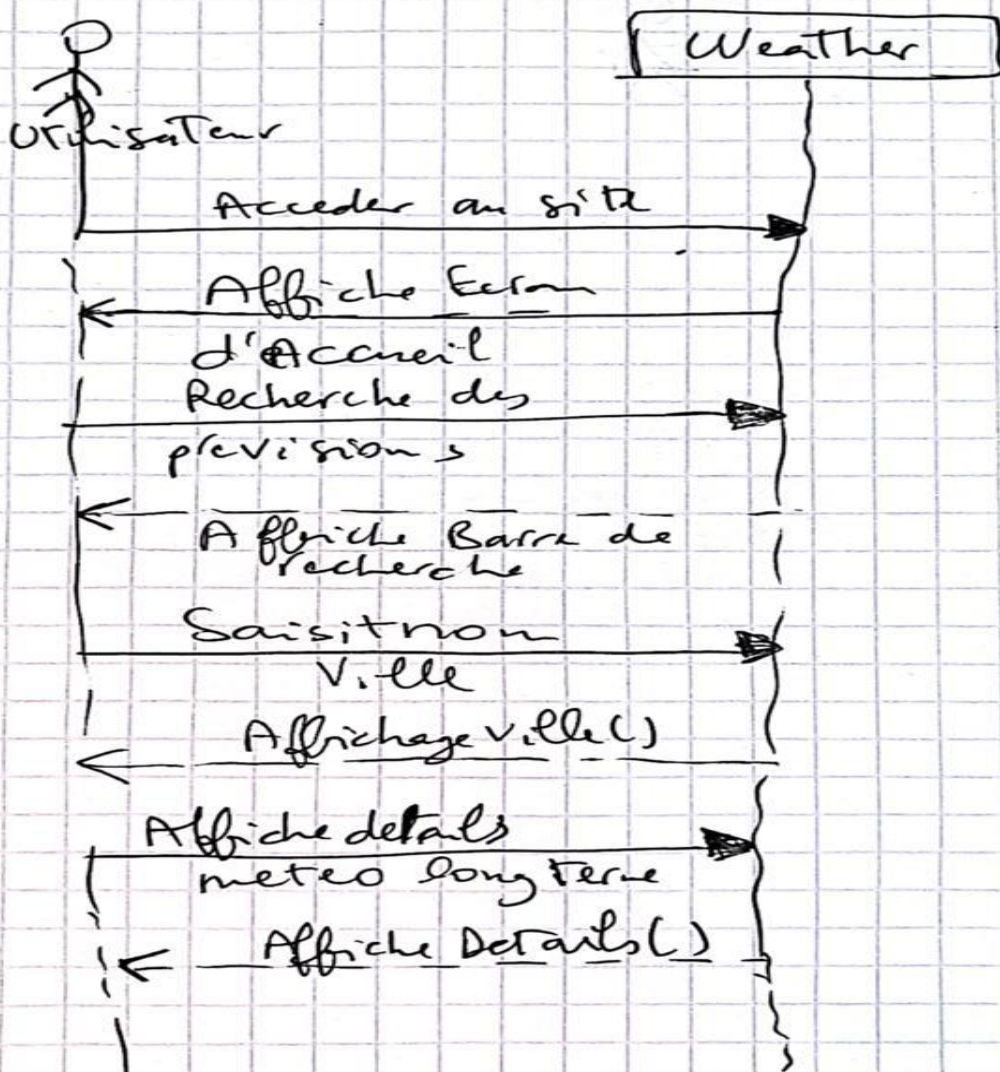 Weather
Utilisateur
Acceder au site
Affiche Ecran
d'Accueil
Recherche des
previsions
Affiche Barre de
recherche
Saisit nom
Ville
Affichage Ville()
Affiche details
meteo long terme
Affiche Details()